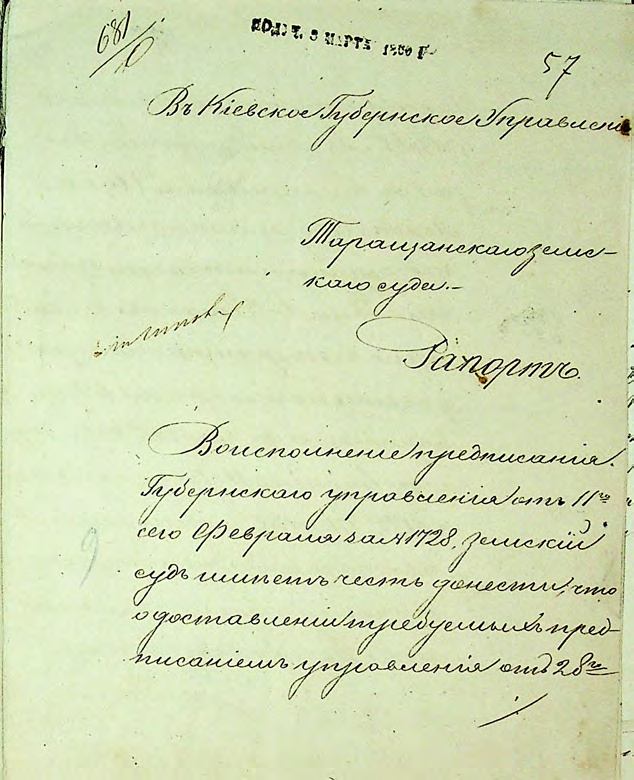 681/10
ПОЛУЧ. 3 МАРТА 1860 Г
57
Въ Кіевское Губернское Управленіе
Таращанскаго зем-
скаго суда.-
Рапортъ.
Во исполненіе предписанія
Губернскаго управленія отъ 11го
сего Февраля за № 1728, земскій
судъ имѣетъ честь донести, что
о доставленіи требуемыхъ пред-
писаніемъ управленія отъ 28го